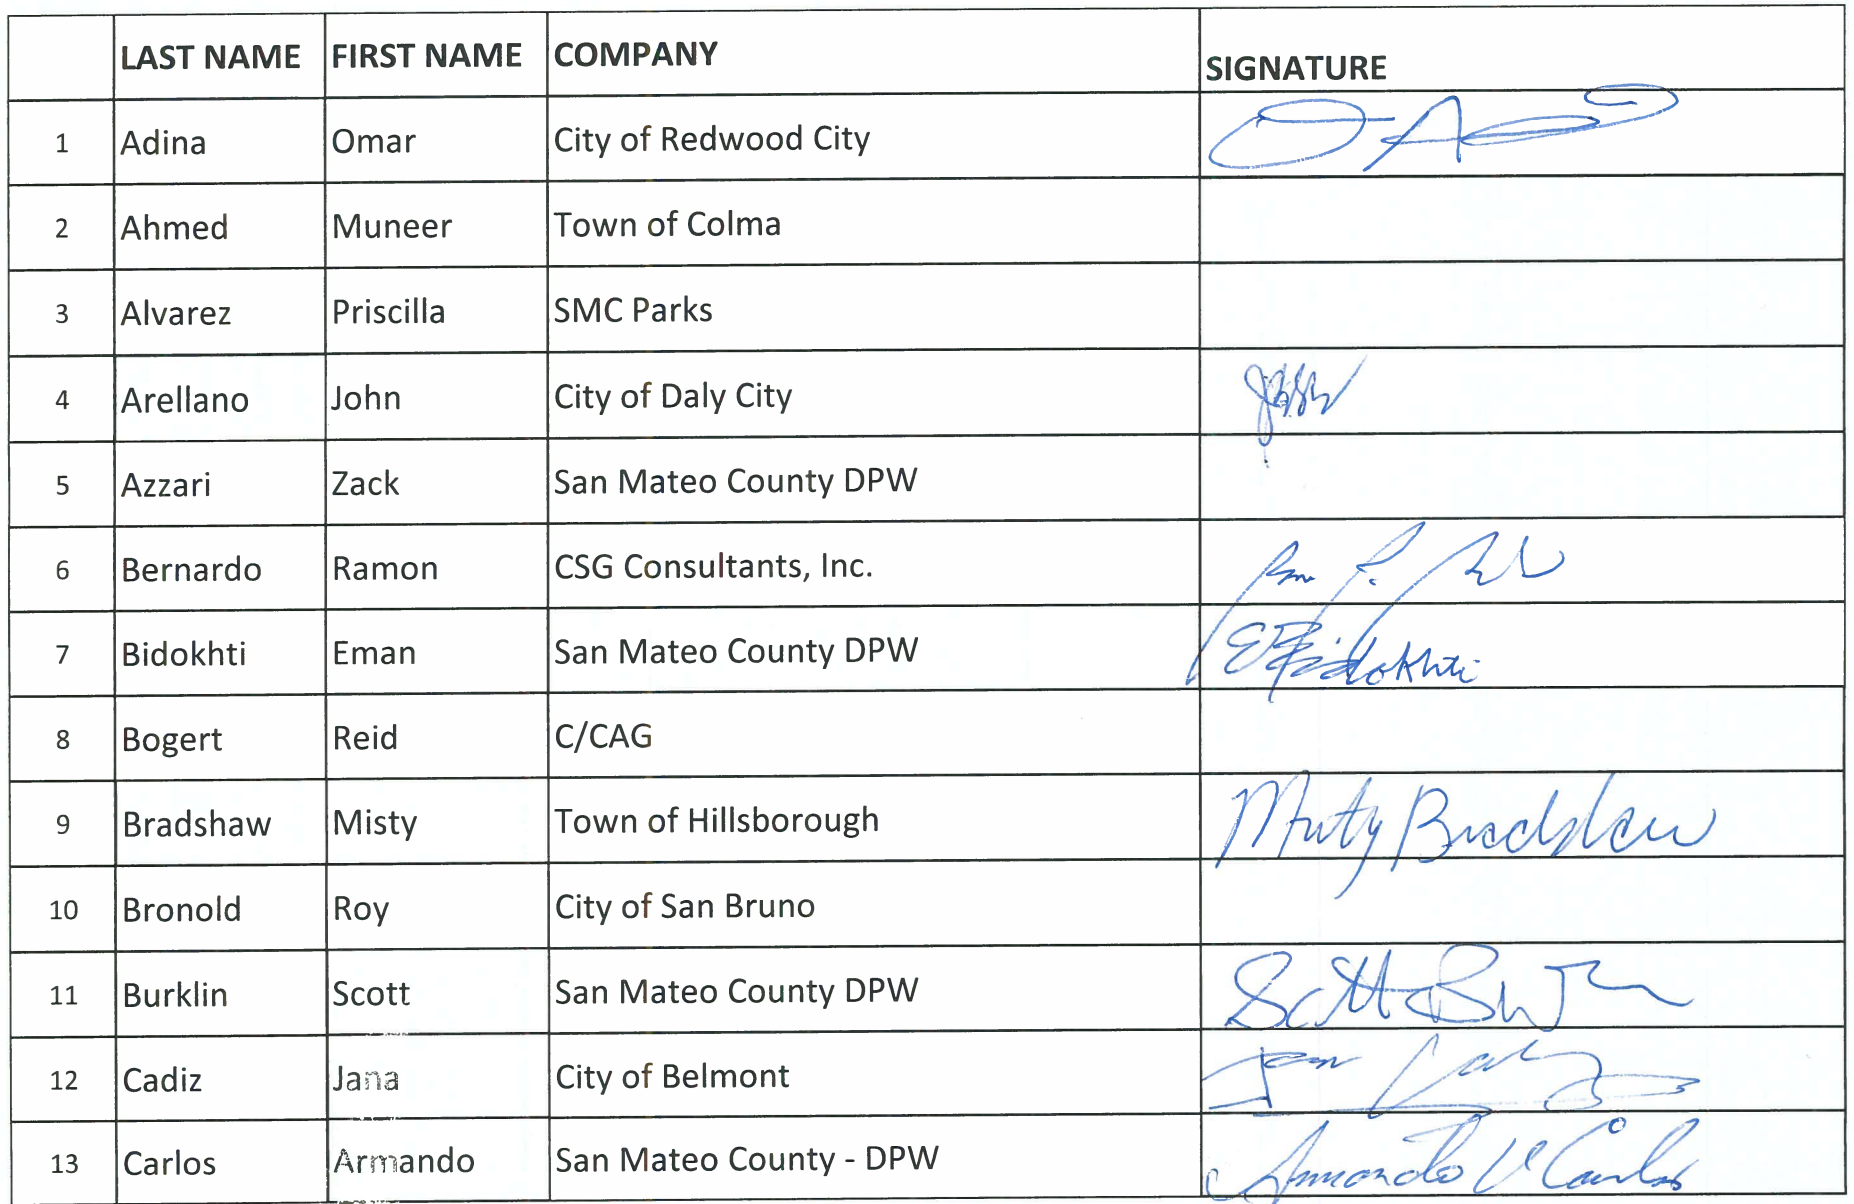 LAST NAME FIRST NAME COMPANY SIGNATURE
1 Adina Omar City of Redwood City
2 Ahmed Muneer Town of Colma
3 Alvarez Priscilla SMC Parks
4 Arellano John City of Daly City
5 Azzari Zack San Mateo County DPW
6 Bernardo Ramon CSG Consultants, Inc.
7 Bidokhti Eman San Mateo County DPW E Bidokhti
8 Bogert Reid C/CAG
9 Bradshaw Misty Town of Hillsborough Misty Bradshaw
10 Bronold Roy City of San Bruno
11 Burklin Scott San Mateo County DPW Scott
12 Cadiz Jana City of Belmont
13 Carlos Armando San Mateo County - DPW Armando V Carlos